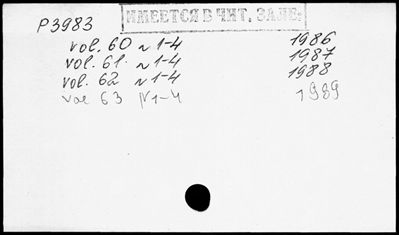 ИМЕЕТСЯ В ЧИТ. ЗАЛЕ:
P3983
vol. 60 N 1-4 1986
vol. 61. N 1-4 1987
vol. 62 N 1-4 1988
vol 63 N 1-4 1989